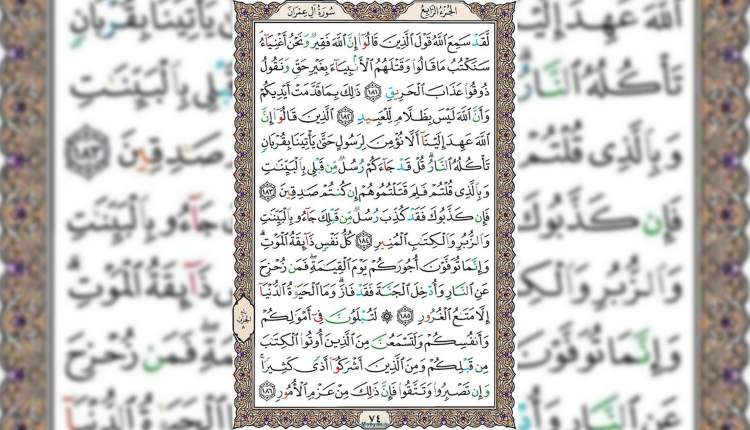 سُورَةُ آلِ عِمْرَانَ
الجُزْءُ الرَّابِعُ
لَّقَدْ سَمِعَ اللَّهُ قَوْلَ الَّذِينَ قَالُوا إِنَّ اللَّهَ فَقِيرٌ وَنَحْنُ أَغْنِيَاءُ
سَنَكْتُبُ مَا قَالُوا وَقَتْلَهُمُ الْأَنبِيَاءَ بِغَيْرِ حَقٍّ وَنَقُولُ
ذُوقُوا عَذَابَ الْحَرِيقِ ١٨١ ذَٰلِكَ بِمَا قَدَّمَتْ أَيْدِيكُمْ
وَأَنَّ اللَّهَ لَيْسَ بِظَلَّامٍ لِّلْعَبِيدِ ١٨٢ الَّذِينَ قَالُوا إِنَّ
اللَّهَ عَهِدَ إِلَيْنَا أَلَّا نُؤْمِنَ لِرَسُولٍ حَتَّىٰ يَأْتِيَنَا بِقُرْبَانٍ
تَأْكُلُهُ النَّارُ ۗ قُلْ قَدْ جَاءَكُمْ رُسُلٌ مِّن قَبْلِي بِالْبَيِّنَٰتِ
وَبِالَّذِي قُلْتُمْ فَلِمَ قَتَلْتُمُوهُمْ إِن كُنتُمْ صَٰدِقِينَ ١٨٣
فَإِن كَذَّبُوكَ فَقَدْ كُذِّبَ رُسُلٌ مِّن قَبْلِكَ جَاءُو بِالْبَيِّنَٰتِ
وَالزُّبُرِ وَالْكِتَٰبِ الْمُنِيرِ ١٨٤ كُلُّ نَفْسٍ ذَائِقَةُ الْمَوْتِ ۗ
وَإِنَّمَا تُوَفَّوْنَ أُجُورَكُمْ يَوْمَ الْقِيَٰمَةِ ۖ فَمَن زُحْزِحَ
عَنِ النَّارِ وَأُدْخِلَ الْجَنَّةَ فَقَدْ فَازَ ۗ وَمَا الْحَيَوٰةُ الدُّنْيَا
إِلَّا مَتَٰعُ الْغُرُورِ ١٨٥ ۞ لَتُبْلَوُنَّ فِي أَمْوَٰلِكُمْ
وَأَنفُسِكُمْ وَلَتَسْمَعُنَّ مِنَ الَّذِينَ أُوتُوا الْكِتَٰبَ
مِن قَبْلِكُمْ وَمِنَ الَّذِينَ أَشْرَكُوا أَذًى كَثِيرًا ۚ
وَإِن تَصْبِرُوا وَتَتَّقُوا فَإِنَّ ذَٰلِكَ مِنْ عَزْمِ الْأُمُورِ ١٨٦
٧٤